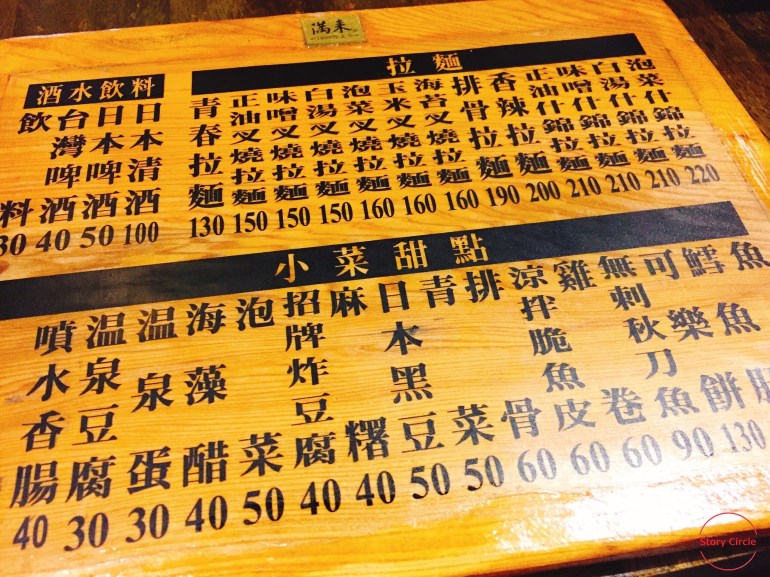 滿来
拉麵
青春拉麵 130
正油叉燒拉麵 150
味噌叉燒拉麵 150
白湯叉燒拉麵 150
泡菜叉燒拉麵 160
玉米叉燒拉麵 160
海苔叉燒拉麵 160
排骨拉麵 190
香辣拉麵 200
正油什錦拉麵 210
味噌什錦拉麵 210
白湯什錦拉麵 210
泡菜什錦拉麵 220
酒水飲料
飲料 30
台灣啤酒 40
日本啤酒 50
日本清酒 100
小菜甜點
噴水香腸 40
温泉豆腐 30
温泉蛋 30
海藻醋 40
泡菜 50
招牌炸豆腐 40
麻糬 40
日本黑豆 50
青菜 50
排骨 60
涼拌脆魚皮 60
雞卷 60
無刺秋刀魚 90
可樂餅 130
鱈魚
魚
Story Circle